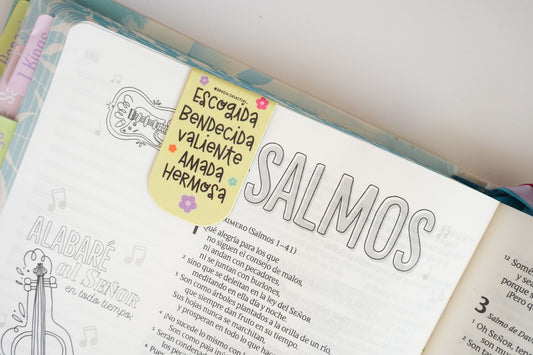 1 Kings
Escogida
Bendecida
valiente
Amada
Hermosa
SALMOS
ALABARÉ
al SEÑOR
en todo tiempo.
(Salmos 1–41)
Qué alegría para los que
no siguen el consejo de malos,
ni andan con pecadores,
ni se juntan con burlones,
2 sino que se deleitan en la ley del SEÑOR
meditando en ella día y noche.
3 Son como árboles plantados a la orilla de un río,
que siempre dan fruto en su tiempo.
Sus hojas nunca se marchitan,
y prosperan en todo lo que hacen.
4 ¡No sucede lo mismo con
Son como paja
5 Serán condenados
los pecadores
12 Somé
será
porque s
¡Pero q
3
Salmo de Davi
1 Oh SEÑOR, ten